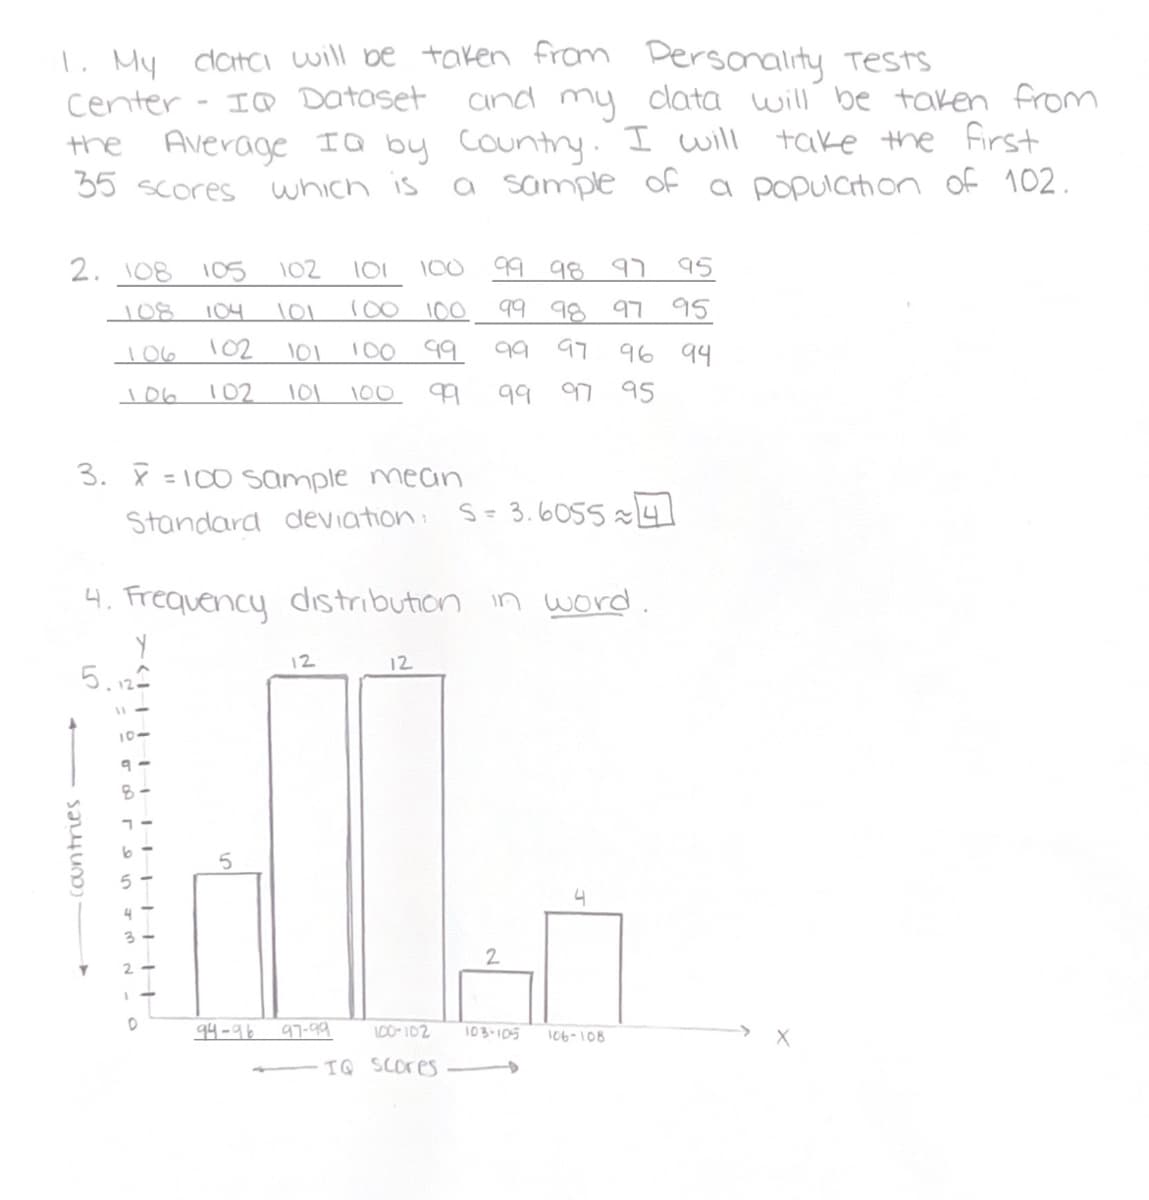 1. My data will be taken from Personality Tests
Center - IQ Dataset and my data will be taken from
the Average IQ by Country. I will take the first
35 scores which is a sample of a population of 102.
2. 108 105 102 101 100 99 98 97 95
108 104 101 100 100 99 98 97 95
106 102 101 100 99 99 97 96 94
106 102 101 100 99 99 97 95
3. x̄ = 100 sample mean
Standard deviation: S = 3.6055 ≈ 4
4. Frequency distribution in word.
Y
5.
12 12
12
11
10
9
8
7
6
5
5
4
4
3
2
2
1
0
countries
94-96 97-99 100-102 103-105 106-108 X
IQ scores